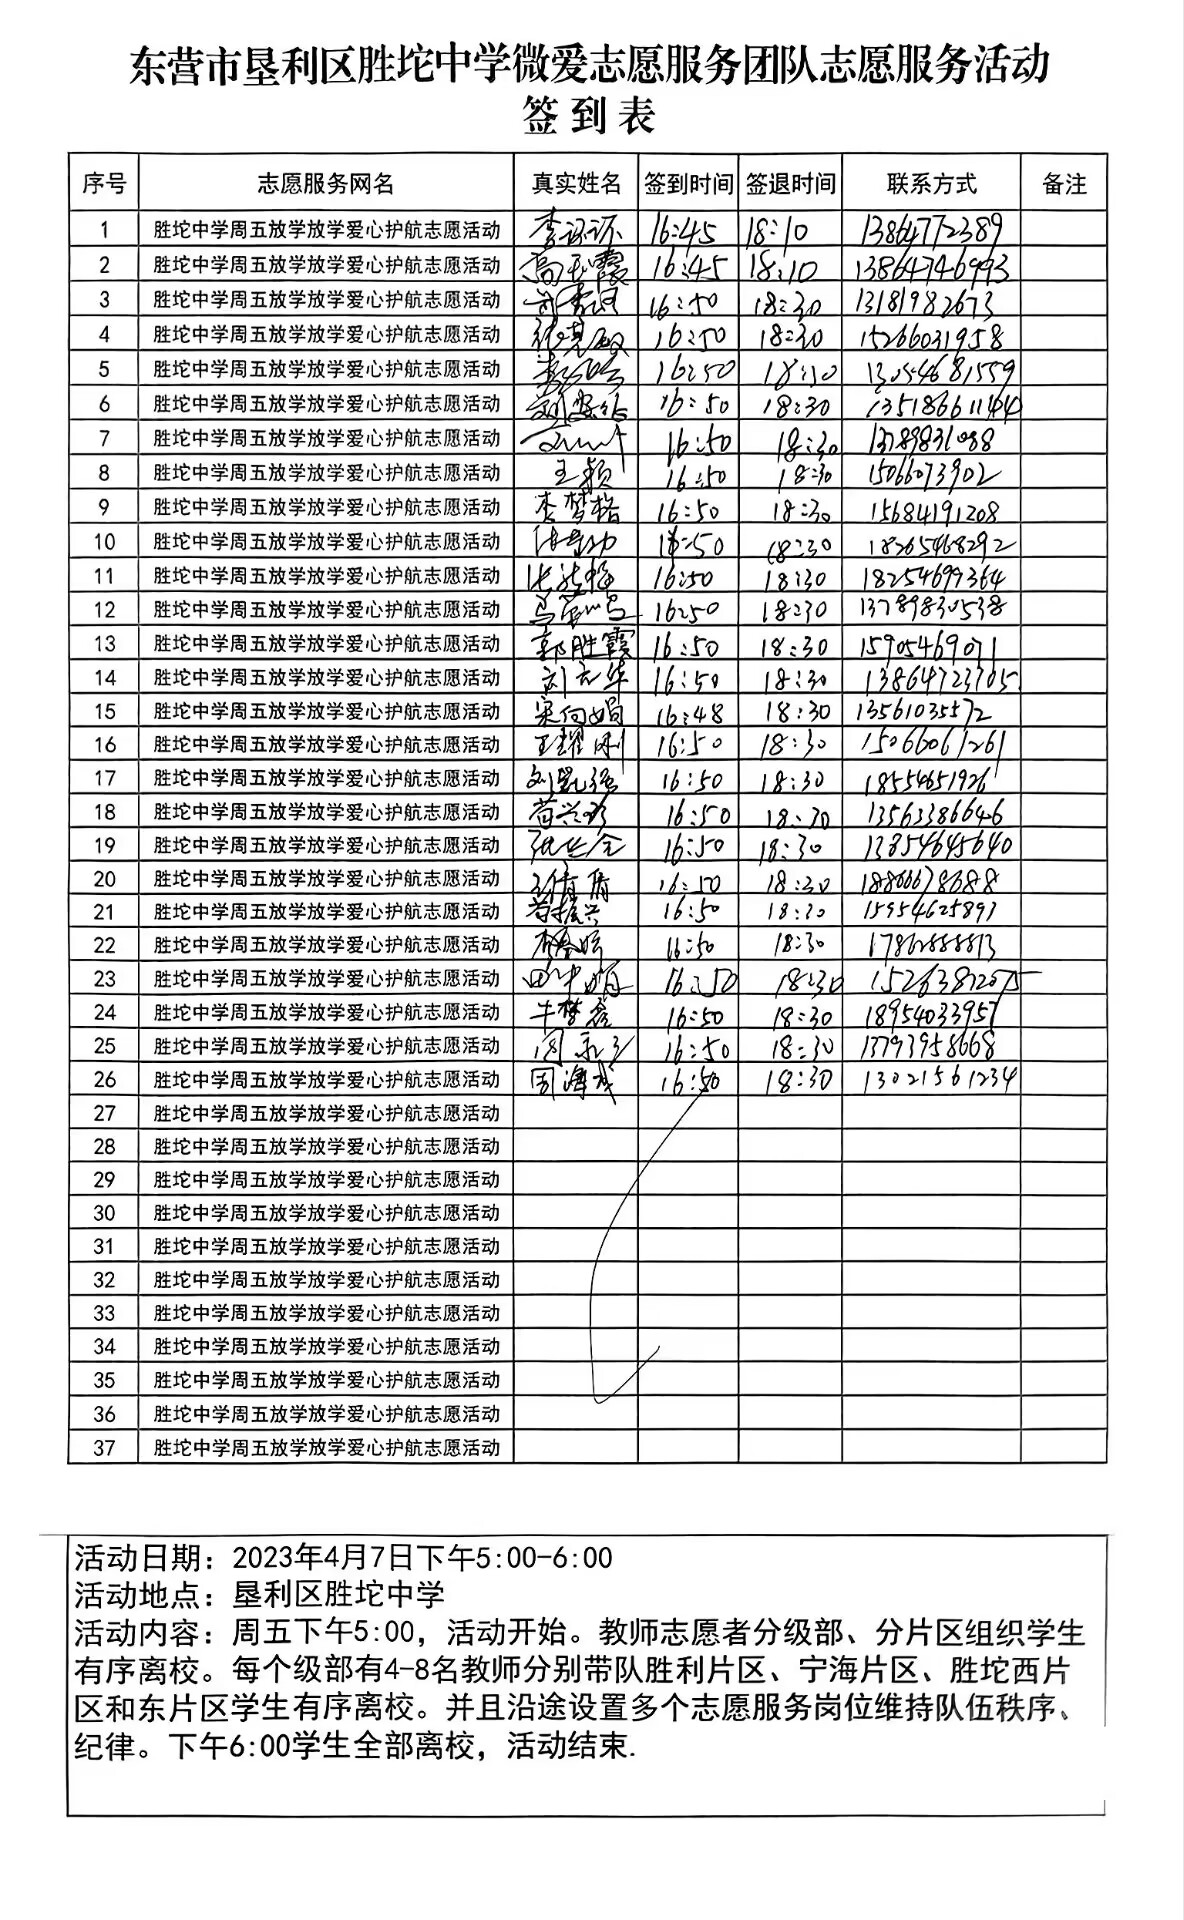 东营市垦利区胜坨中学微爱志愿服务团队志愿服务活动
签到表
序号 志愿服务网名 真实姓名 签到时间 签退时间 联系方式 备注
1 胜坨中学周五放学放学爱心护航志愿活动 16:45 18:10 13864772389
2 胜坨中学周五放学放学爱心护航志愿活动 高玉霞 16:45 18:10 13864746993
3 胜坨中学周五放学放学爱心护航志愿活动 16:50 18:30 13181982673
4 胜坨中学周五放学放学爱心护航志愿活动 16:50 18:30 15266031958
5 胜坨中学周五放学放学爱心护航志愿活动 16:50 18:30 13054681559
6 胜坨中学周五放学放学爱心护航志愿活动 16:50 18:30 13518661144
7 胜坨中学周五放学放学爱心护航志愿活动 16:50 18:30 13789831088
8 胜坨中学周五放学放学爱心护航志愿活动 王颖 16:50 18:30 15066073902
9 胜坨中学周五放学放学爱心护航志愿活动 李梦格 16:50 18:30 15684191208
10 胜坨中学周五放学放学爱心护航志愿活动 16:50 18:30 18265468292
11 胜坨中学周五放学放学爱心护航志愿活动 16:50 18:30 18254699364
12 胜坨中学周五放学放学爱心护航志愿活动 16:50 18:30 13789830538
13 胜坨中学周五放学放学爱心护航志愿活动 郭胜霞 16:50 18:30 15905469071
14 胜坨中学周五放学放学爱心护航志愿活动 刘元华 16:50 18:30 13864723705
15 胜坨中学周五放学放学爱心护航志愿活动 宋向娟 16:48 18:30 13561035572
16 胜坨中学周五放学放学爱心护航志愿活动 王耀刚 16:50 18:30 15066061261
17 胜坨中学周五放学放学爱心护航志愿活动 刘凯强 16:50 18:30 18554651926
18 胜坨中学周五放学放学爱心护航志愿活动 苟兴珍 16:50 18:30 13563386646
19 胜坨中学周五放学放学爱心护航志愿活动 16:50 18:30 13854645640
20 胜坨中学周五放学放学爱心护航志愿活动 16:50 18:30 18866678688
21 胜坨中学周五放学放学爱心护航志愿活动 苟振兴 16:50 18:30 15954625897
22 胜坨中学周五放学放学爱心护航志愿活动 16:50 18:30 17862888813
23 胜坨中学周五放学放学爱心护航志愿活动 16:50 18:30 15263812075
24 胜坨中学周五放学放学爱心护航志愿活动 牛梦磊 16:50 18:30 18954033957
25 胜坨中学周五放学放学爱心护航志愿活动 16:50 18:30 13793958668
26 胜坨中学周五放学放学爱心护航志愿活动 周海成 16:50 18:30 13021561234
27 胜坨中学周五放学放学爱心护航志愿活动
28 胜坨中学周五放学放学爱心护航志愿活动
29 胜坨中学周五放学放学爱心护航志愿活动
30 胜坨中学周五放学放学爱心护航志愿活动
31 胜坨中学周五放学放学爱心护航志愿活动
32 胜坨中学周五放学放学爱心护航志愿活动
33 胜坨中学周五放学放学爱心护航志愿活动
34 胜坨中学周五放学放学爱心护航志愿活动
35 胜坨中学周五放学放学爱心护航志愿活动
36 胜坨中学周五放学放学爱心护航志愿活动
37 胜坨中学周五放学放学爱心护航志愿活动
活动日期：2023年4月7日下午5:00-6:00
活动地点：垦利区胜坨中学
活动内容：周五下午5:00，活动开始。教师志愿者分级部、分片区组织学生
有序离校。每个级部有4-8名教师分别带队胜利片区、宁海片区、胜坨西片
区和东片区学生有序离校。并且沿途设置多个志愿服务岗位维持队伍秩序、
纪律。下午6:00学生全部离校，活动结束.